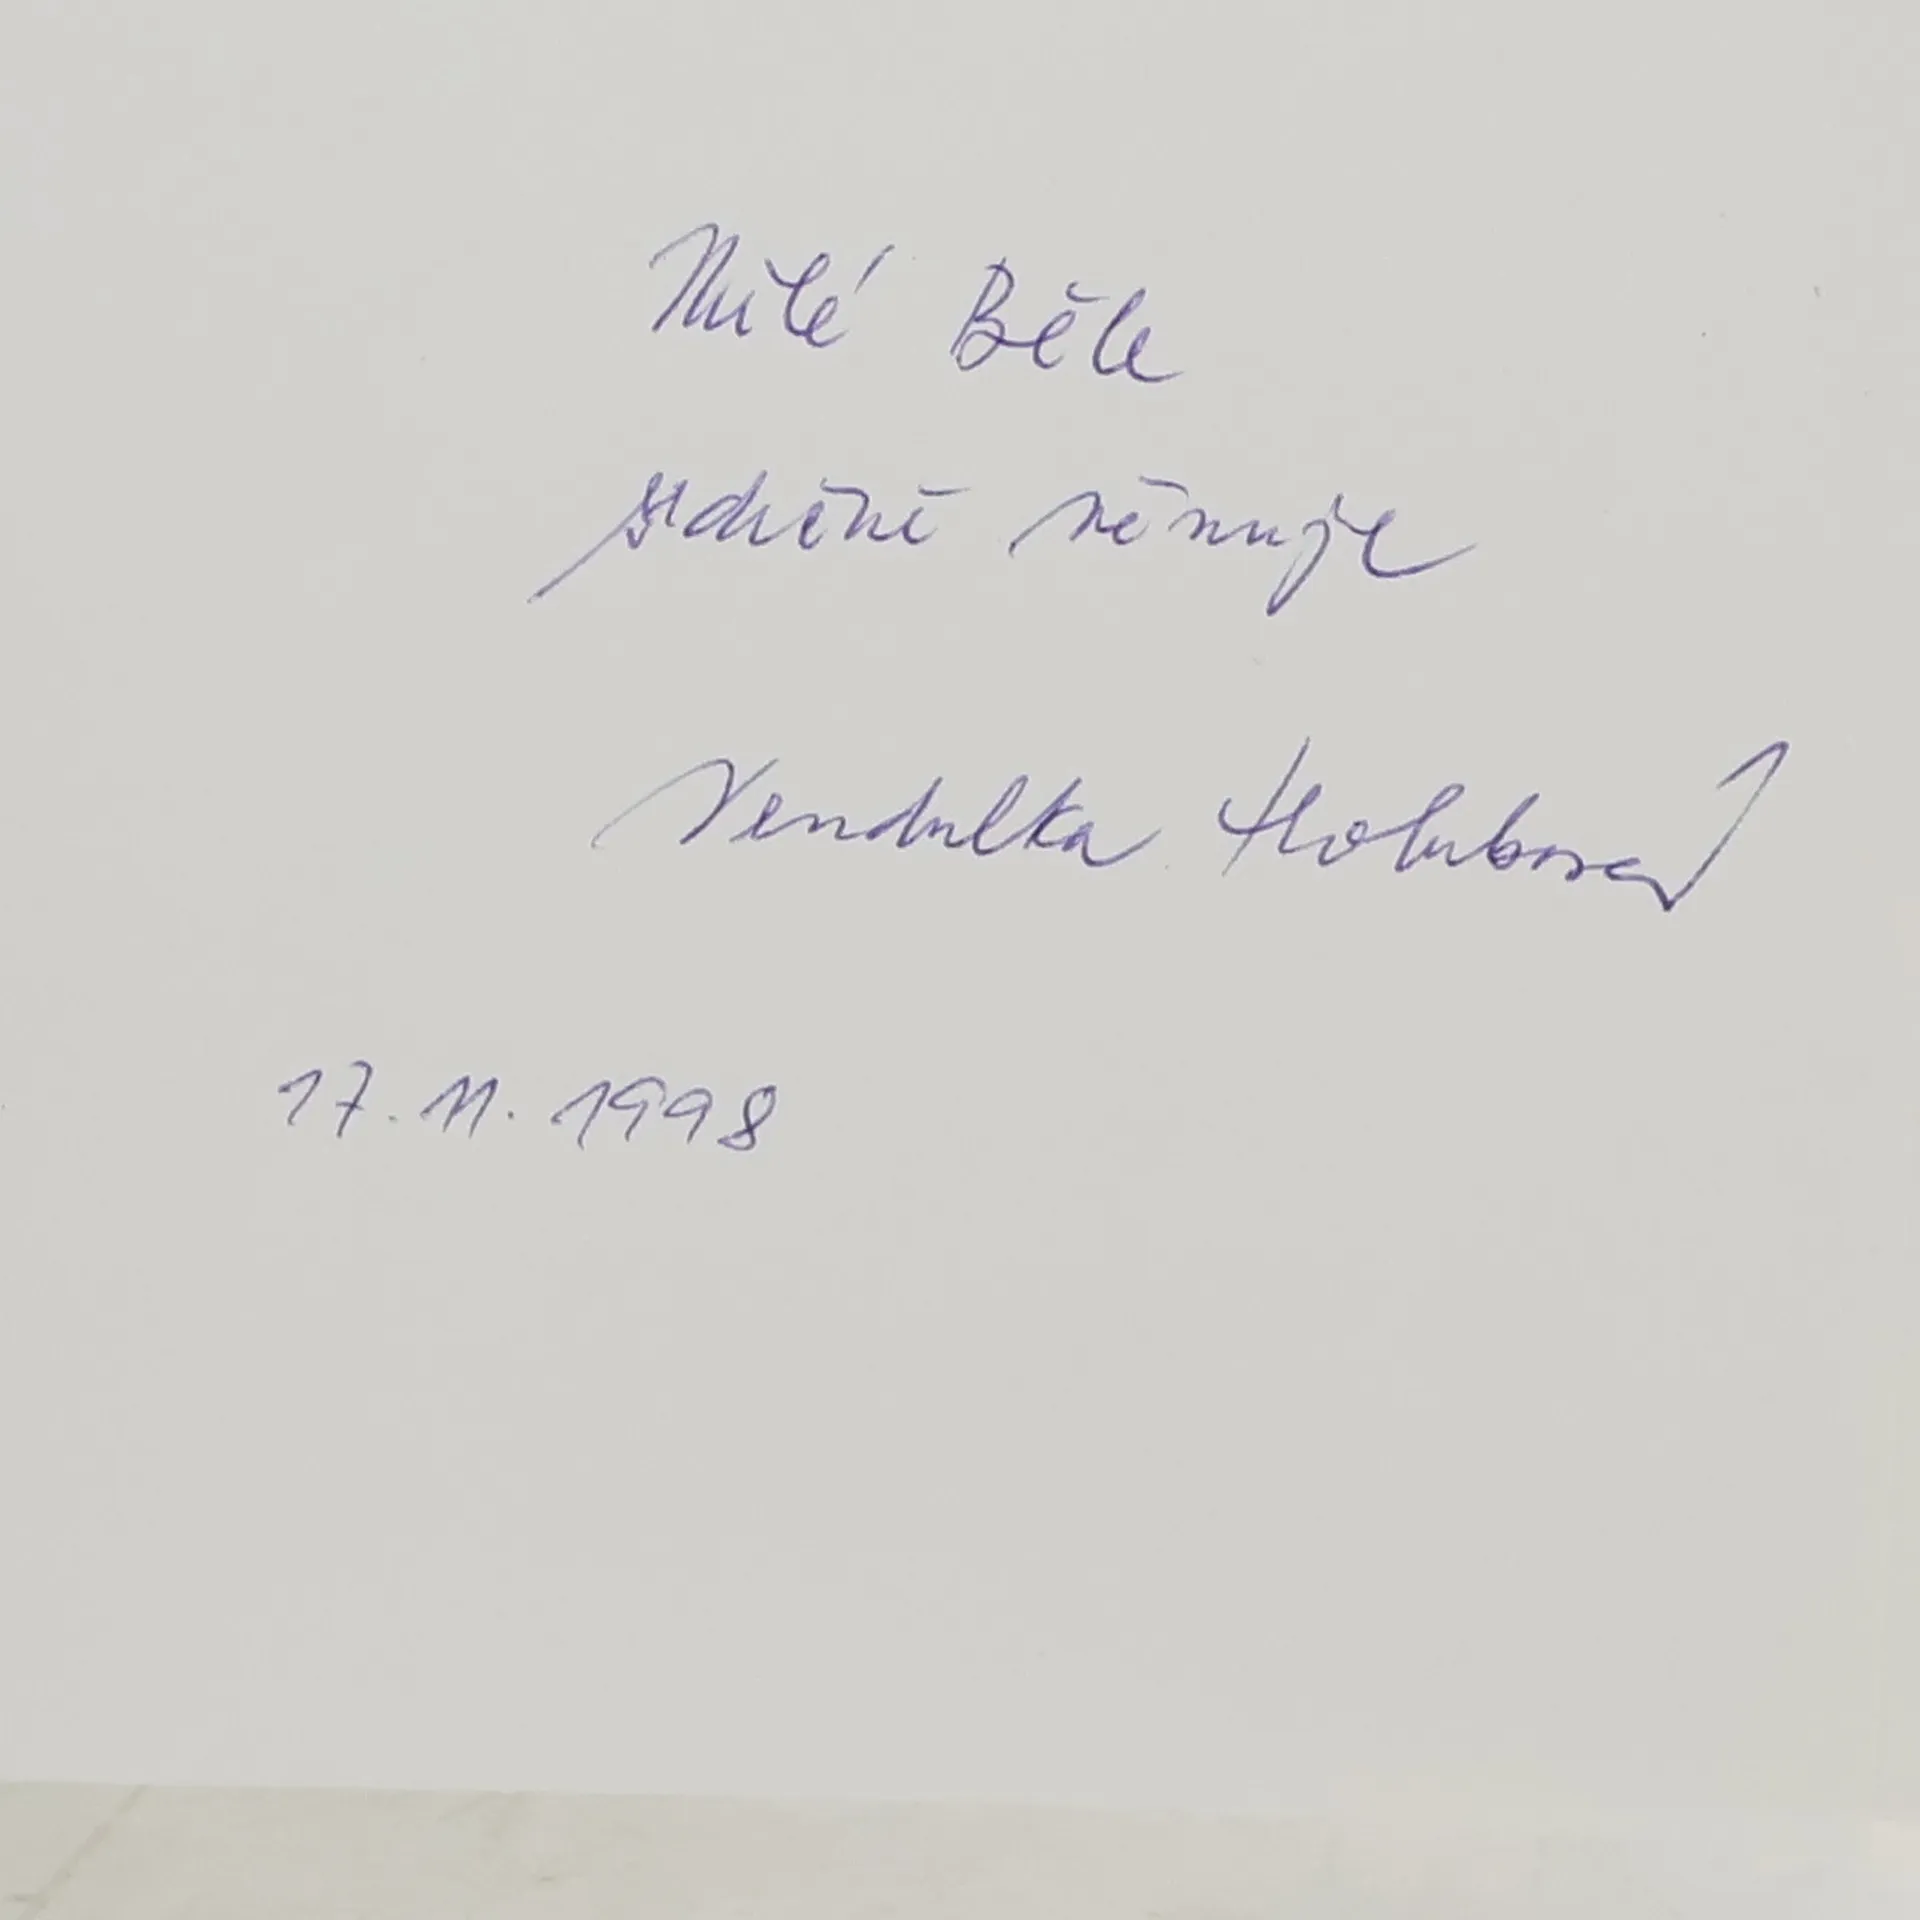 Milé Běle
srdečně věnuje
Vendulka Holubová
17. 11. 1998